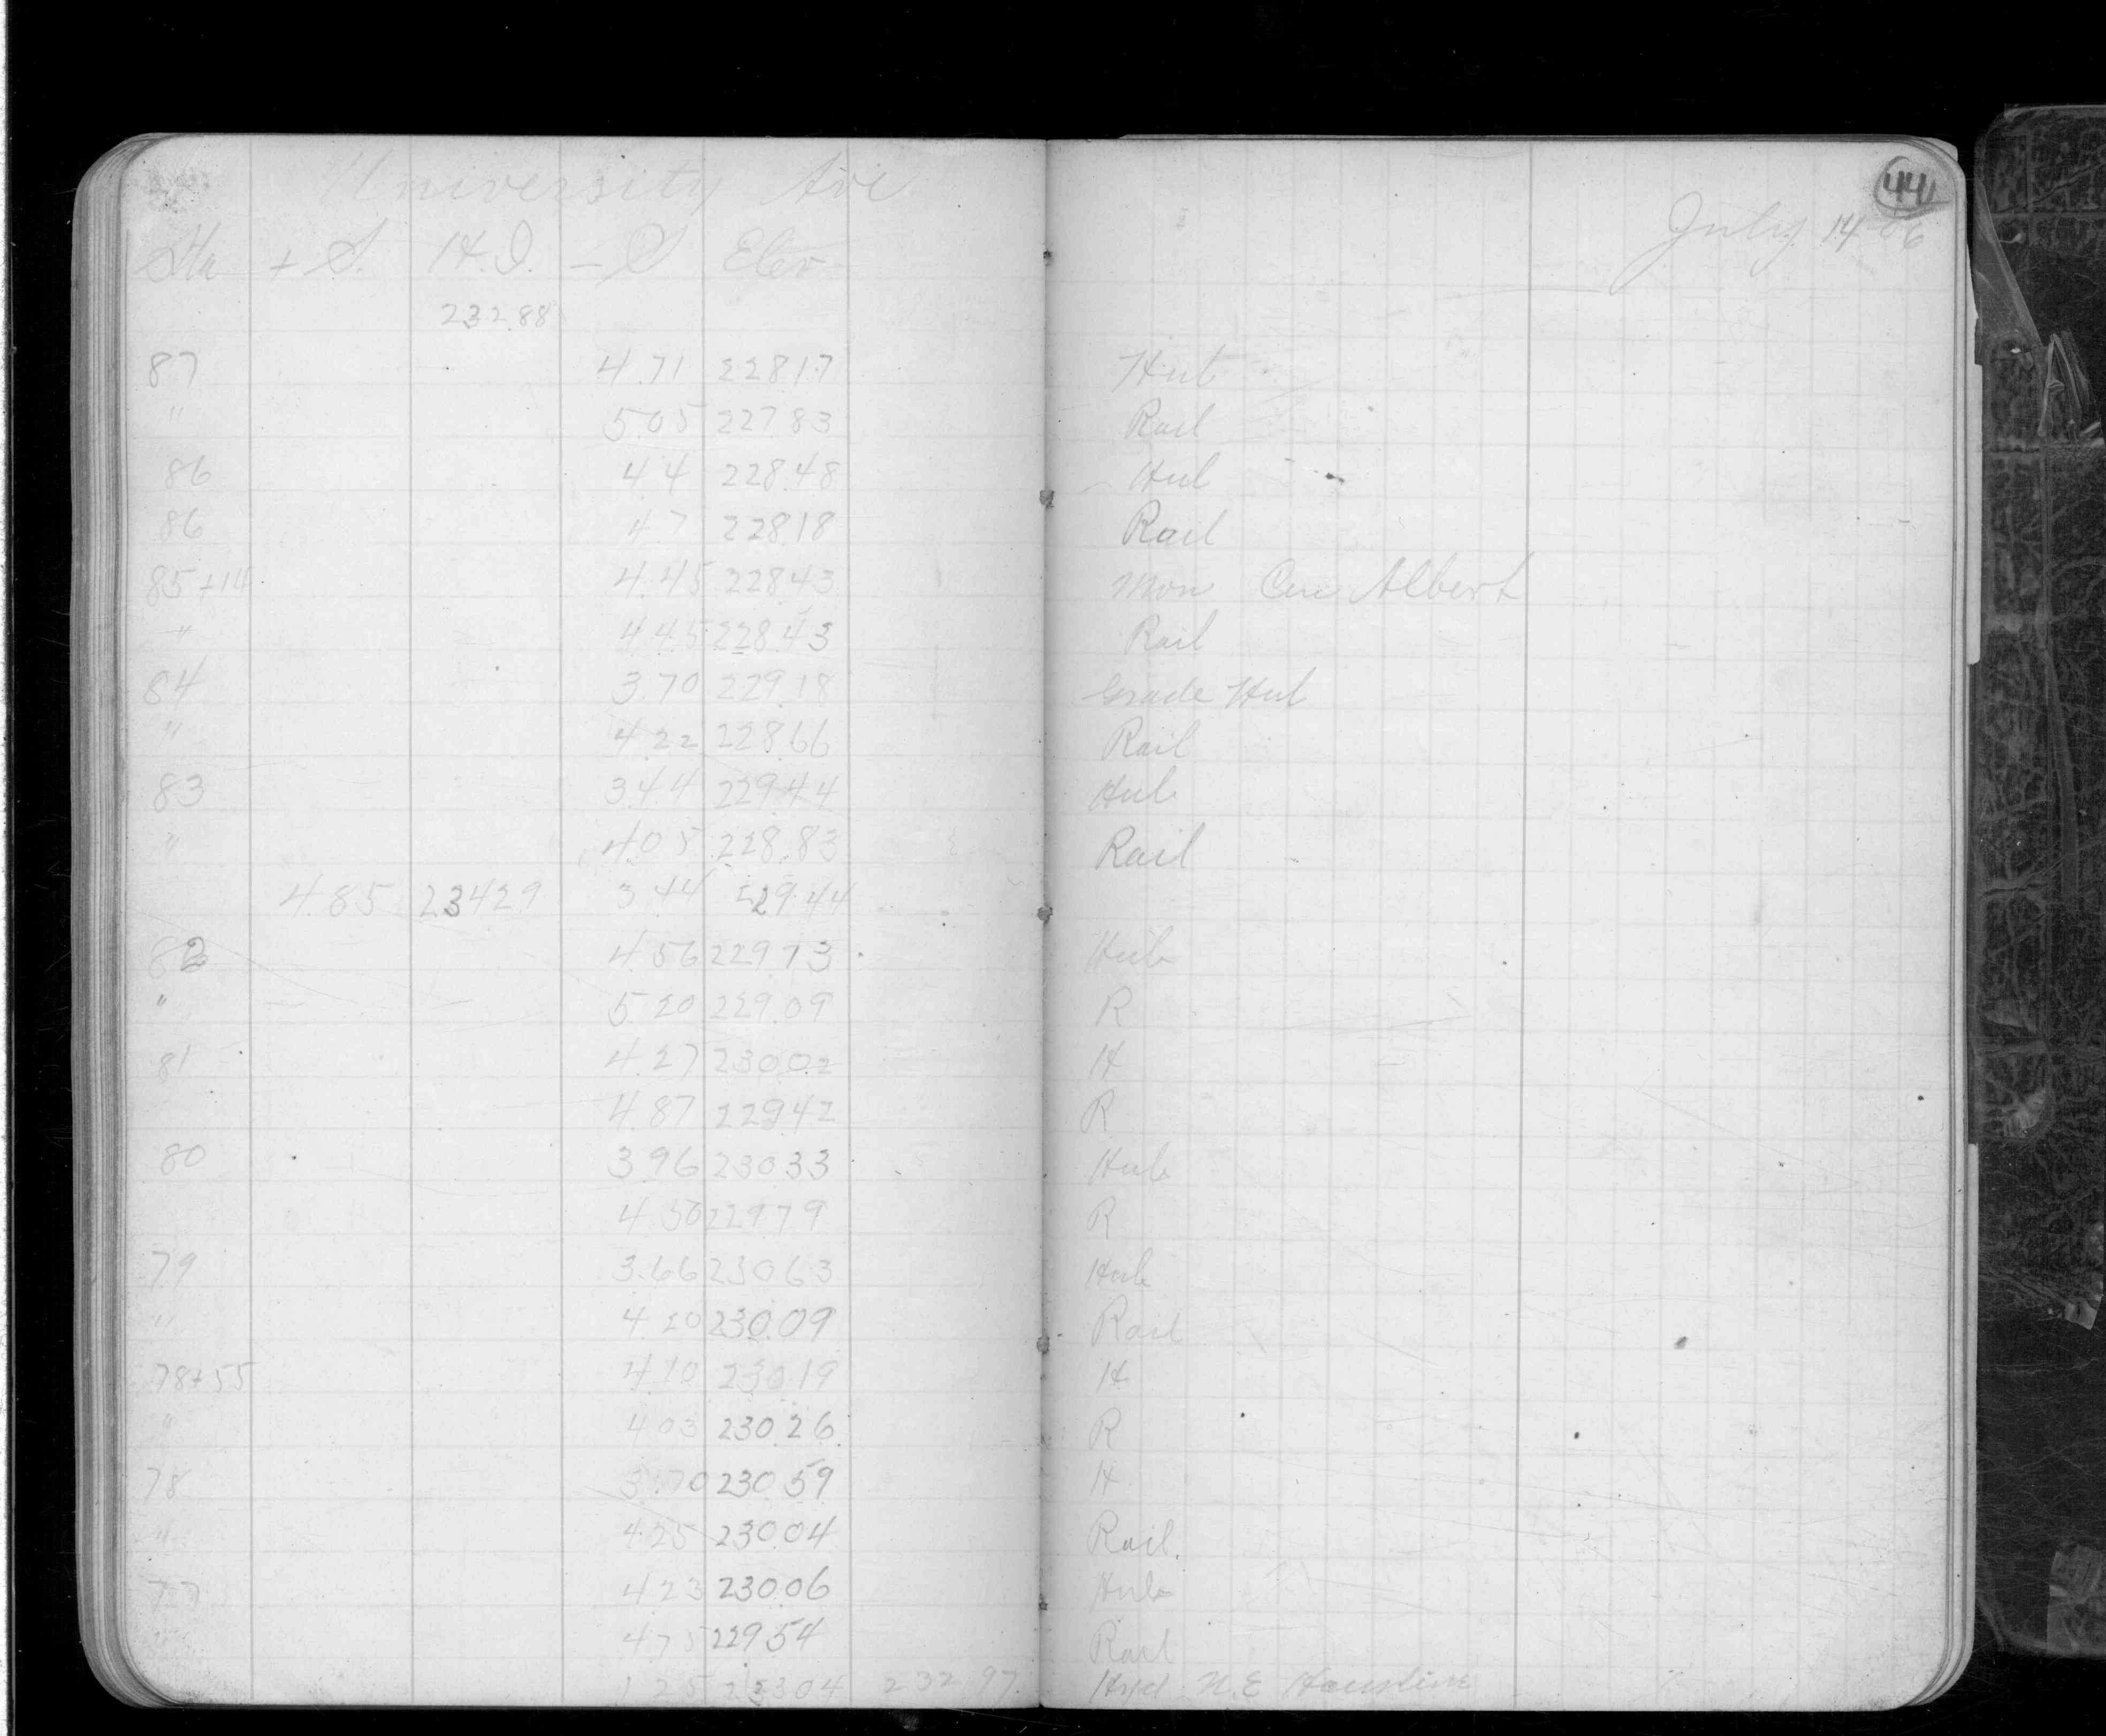 44
University Ave
July 14-06
Sta + S. H.I. - S Elev
232.88
87 4.71 228.17 Hub
" 5.05 227.83 Rail
86 4.4 228.48 Hub
86 4.7 228.18 Rail
85+14 4.45 228.43 Mon Cen Albert
" 4.45 228.43 Rail
84 3.70 229.18 Grade Hub
" 4.22 228.66 Rail
83 3.44 229.44 Hub
" 4.05 228.83 Rail
4.85 234.29 3.44 229.44
82 4.56 229.73 Hub
" 5.20 229.09 R
81 4.27 230.02 H
4.87 229.42 R
80 3.96 230.33 Hub
4.50 229.79 R
79 3.66 230.63 Hub
" 4.20 230.09 Rail
78+55 4.10 230.19 H
" 4.03 230.26 R
78 3.70 230.59 H
" 4.25 230.04 Rail.
77 4.23 230.06 Hub
" 4.75 229.54 Rail
1.25 233.04 232.97 Hyd N.E